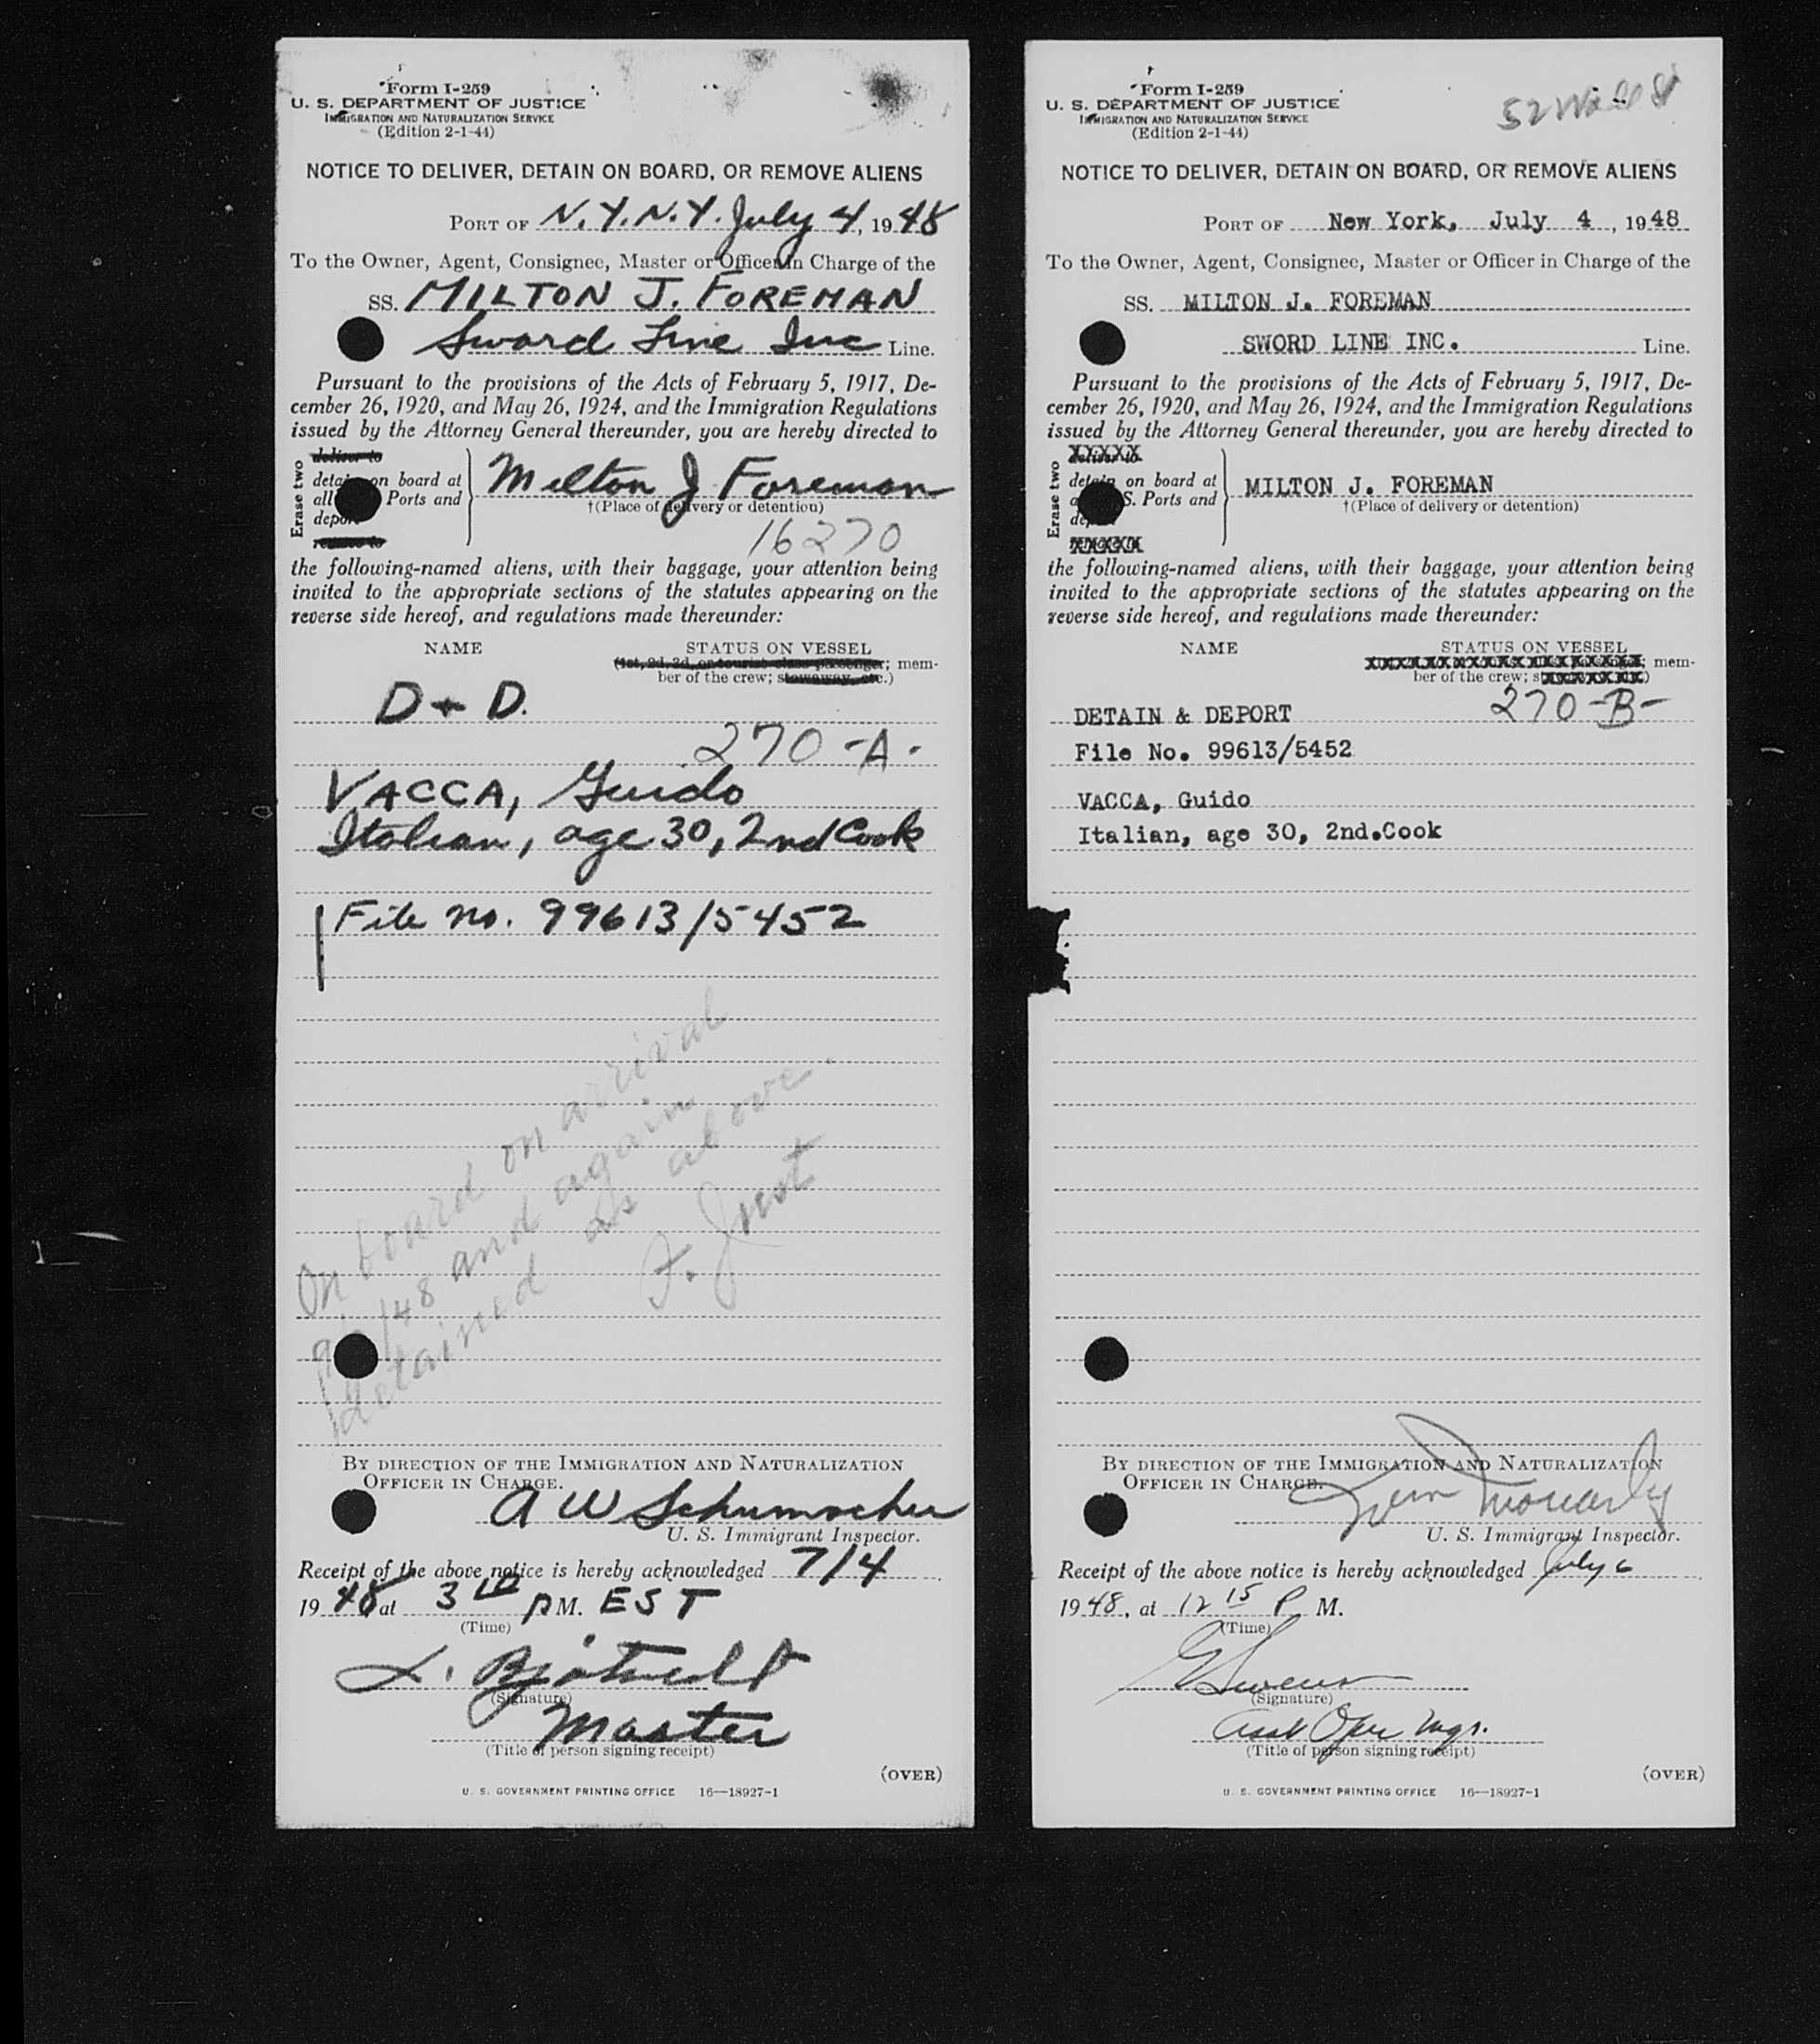 Form I-259
U. S. DEPARTMENT OF JUSTICE
IMMIGRATION AND NATURALIZATION SERVICE
(Edition 2-1-44)
NOTICE TO DELIVER, DETAIN ON BOARD, OR REMOVE ALIENS
PORT OF N.Y.N.Y. July 4, 1948
To the Owner, Agent, Consignee, Master or Officer in Charge of the
SS. MILTON J. FOREMAN
Sword Line Inc Line.
Pursuant to the provisions of the Acts of February 5, 1917, De-
cember 26, 1920, and May 26, 1924, and the Immigration Regulations
issued by the Attorney General thereunder, you are hereby directed to
Erase two
deliver to
detain on board at
all Ports and
depor
remove to
Milton J Foreman
†(Place of delivery or detention)
16270
the following-named aliens, with their baggage, your attention being
invited to the appropriate sections of the statutes appearing on the
reverse side hereof, and regulations made thereunder:
NAME STATUS ON VESSEL
(1st, 2d, 3d, or tourist class passenger; mem-
ber of the crew; stowaway, etc.)
D + D.
270-A-
VACCA, Guido
Italian, age 30, 2nd Cook
File no. 99613/5452
On board on arrival
/48 and again
detained as above.
F. Just
BY DIRECTION OF THE IMMIGRATION AND NATURALIZATION
OFFICER IN CHARGE.
A W Schumacher
U. S. Immigrant Inspector.
Receipt of the above notice is hereby acknowledged 7/4
1948 at 3 10 PM. EST
(Time)
(Signature)
Master
(Title of person signing receipt)
(OVER)
U. S. GOVERNMENT PRINTING OFFICE 16—18927-1
Form I-259
U. S. DEPARTMENT OF JUSTICE
IMMIGRATION AND NATURALIZATION SERVICE
(Edition 2-1-44)
52 Wall St
NOTICE TO DELIVER, DETAIN ON BOARD, OR REMOVE ALIENS
PORT OF New York, July 4, 1948
To the Owner, Agent, Consignee, Master or Officer in Charge of the
SS. MILTON J. FOREMAN
SWORD LINE INC. Line.
Pursuant to the provisions of the Acts of February 5, 1917, De-
cember 26, 1920, and May 26, 1924, and the Immigration Regulations
issued by the Attorney General thereunder, you are hereby directed to
Erase two
deliver to
detain on board at
S. Ports and
MILTON J. FOREMAN
†(Place of delivery or detention)
the following-named aliens, with their baggage, your attention being
invited to the appropriate sections of the statutes appearing on the
reverse side hereof, and regulations made thereunder:
NAME STATUS ON VESSEL
; mem-
ber of the crew;
270-B-
DETAIN & DEPORT
File No. 99613/5452
VACCA, Guido
Italian, age 30, 2nd.Cook
BY DIRECTION OF THE IMMIGRATION AND NATURALIZATION
OFFICER IN CHARGE.
U. S. Immigrant Inspector.
Receipt of the above notice is hereby acknowledged July 6
1948, at 12 15 P M.
(Time)
(Signature)
Asst Oper Mgr.
(Title of person signing receipt)
(OVER)
U. S. GOVERNMENT PRINTING OFFICE 16—18927-1